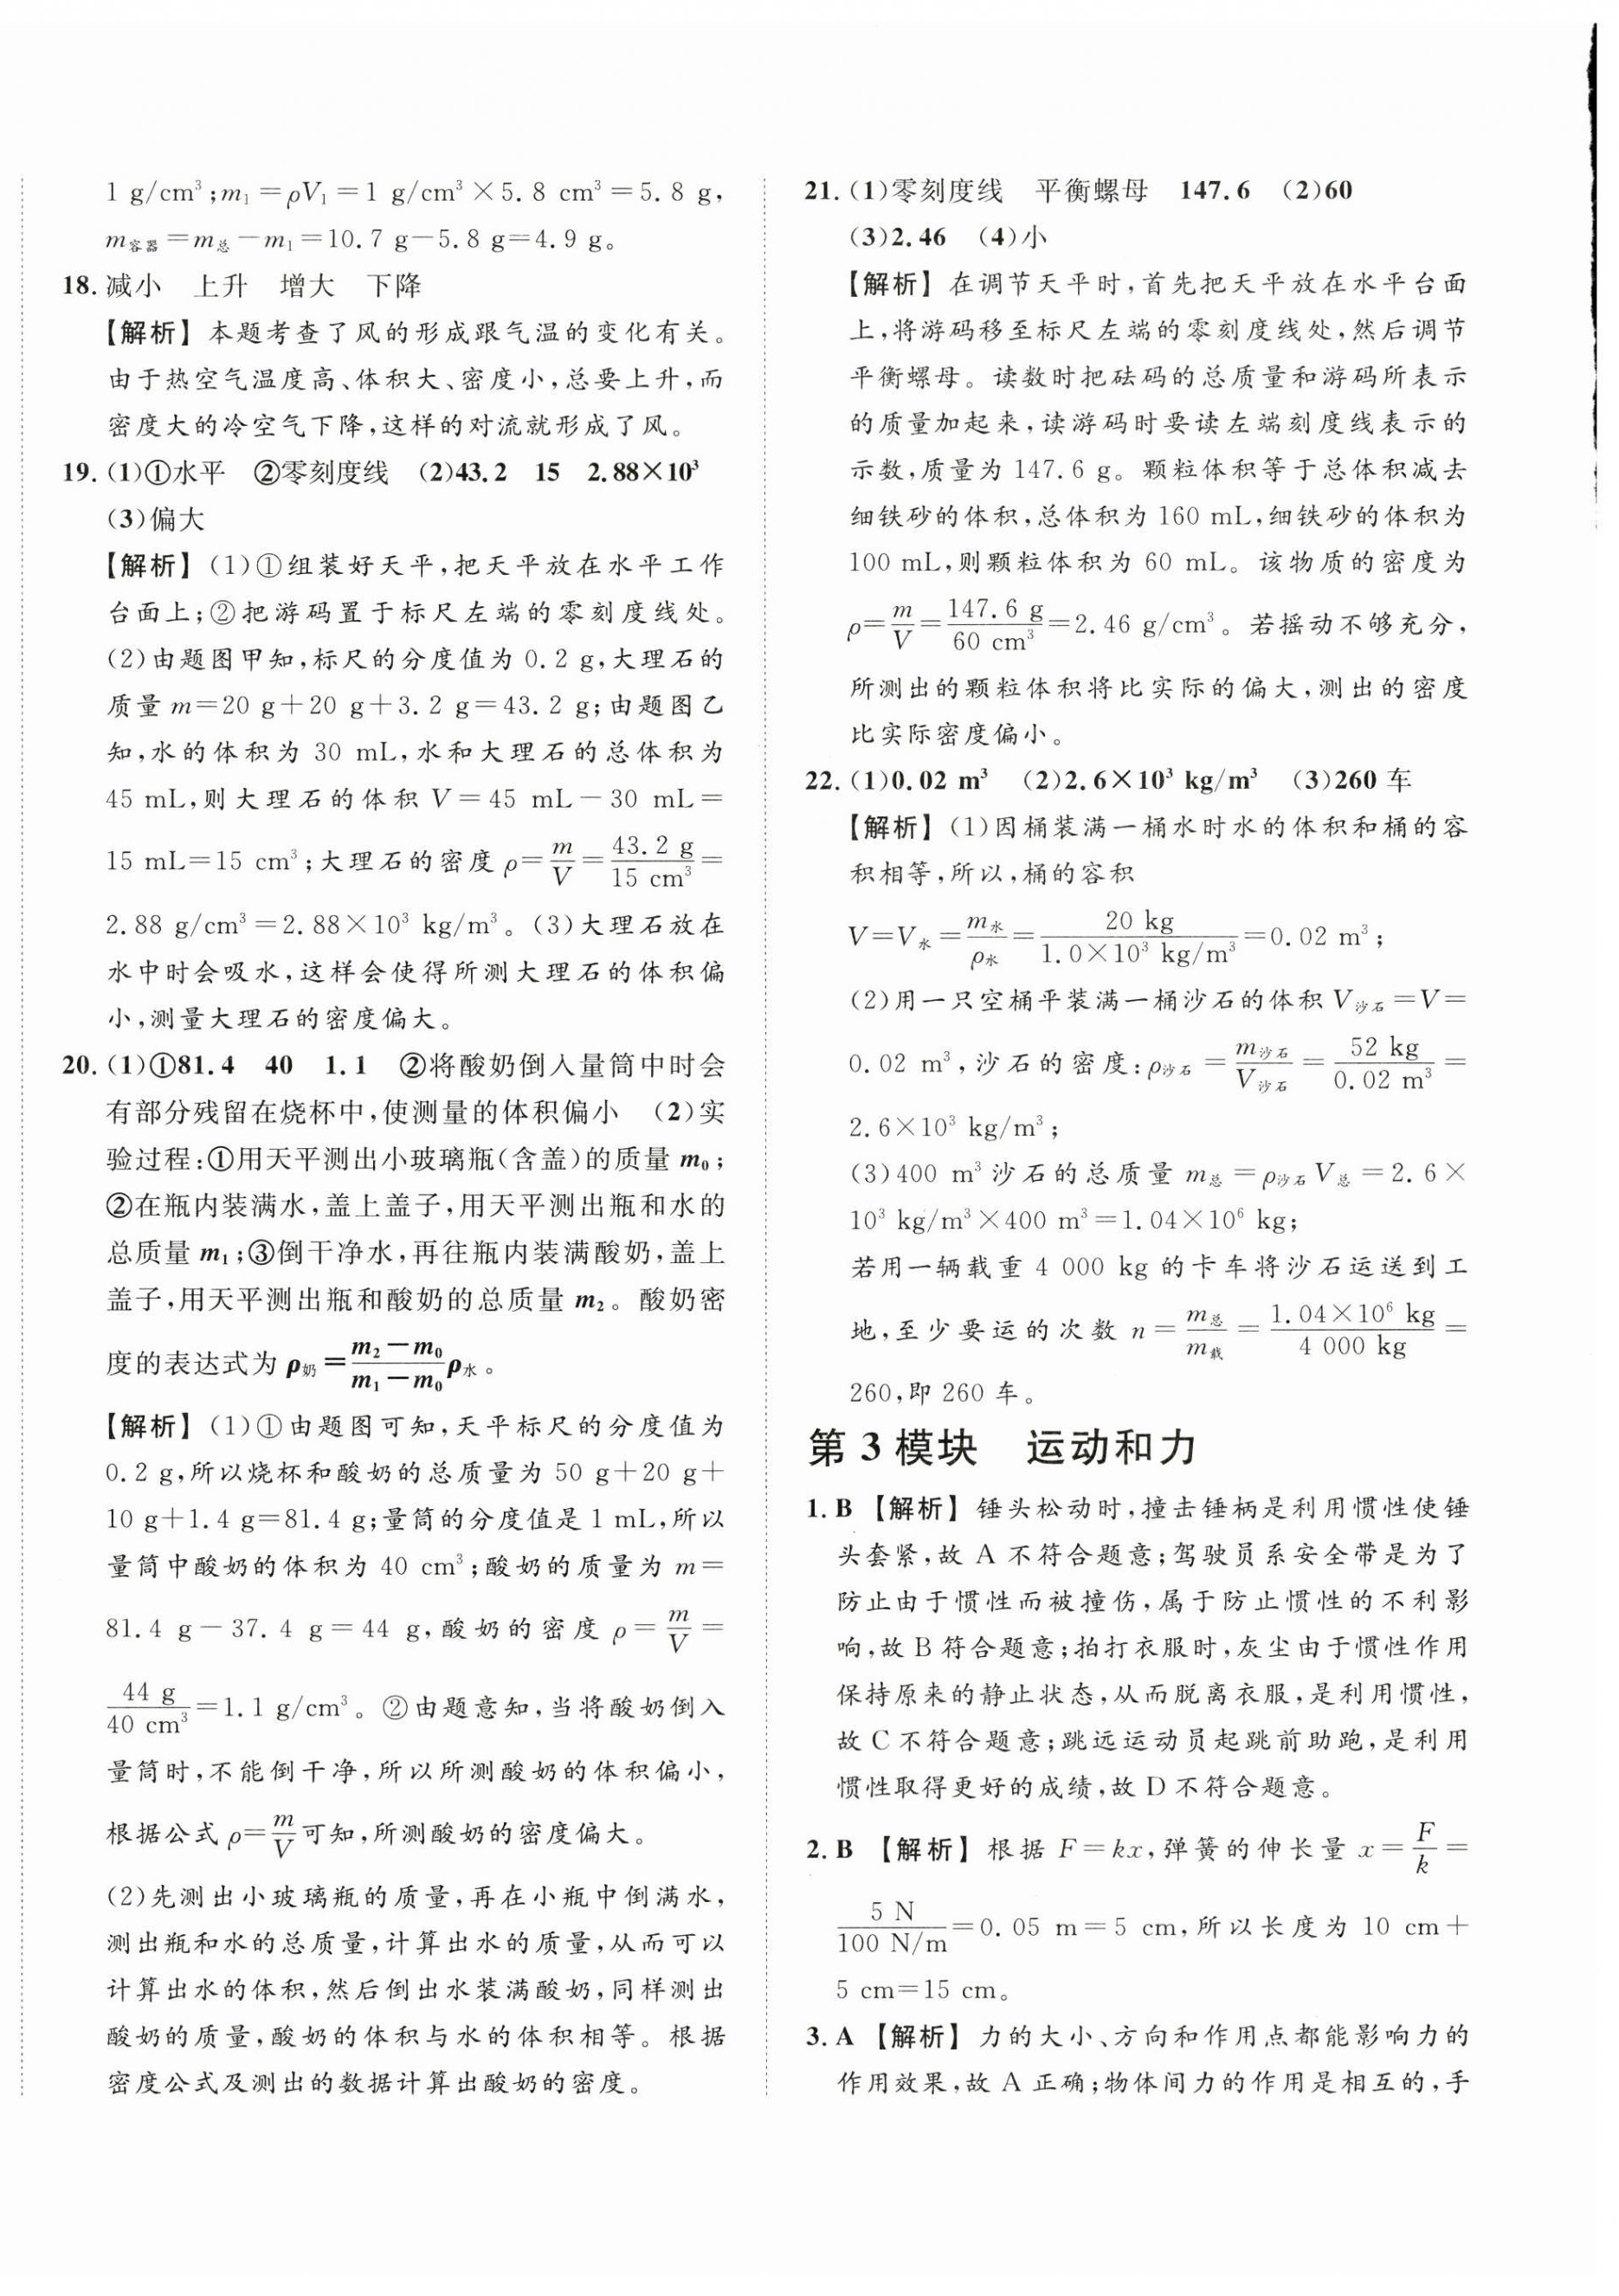 1 g/cm³;m₁=ρV₁=1 g/cm³×5.8 cm³=5.8 g,
m容器=m总-m₁=10.7 g-5.8 g=4.9 g。
18.减小 上升 增大 下降
【解析】本题考查了风的形成跟气温的变化有关。
由于热空气温度高、体积大、密度小,总要上升,而
密度大的冷空气下降,这样的对流就形成了风。
19.(1)①水平 ②零刻度线 (2)43.2 15 2.88×10³
(3)偏大
【解析】(1)①组装好天平,把天平放在水平工作
台面上;②把游码置于标尺左端的零刻度线处。
(2)由题图甲知,标尺的分度值为 0.2 g,大理石的
质量 m=20 g+20 g+3.2 g=43.2 g;由题图乙
知,水的体积为 30 mL,水和大理石的总体积为
45 mL,则大理石的体积 V=45 mL-30 mL=
15 mL=15 cm³;大理石的密度 ρ=m/V=43.2 g/15 cm³=
2.88 g/cm³=2.88×10³ kg/m³。(3)大理石放在
水中时会吸水,这样会使得所测大理石的体积偏
小,测量大理石的密度偏大。
20.(1)①81.4 40 1.1 ②将酸奶倒入量筒中时会
有部分残留在烧杯中,使测量的体积偏小 (2)实
验过程:①用天平测出小玻璃瓶(含盖)的质量 m₀;
②在瓶内装满水,盖上盖子,用天平测出瓶和水的
总质量 m₁;③倒干净水,再往瓶内装满酸奶,盖上
盖子,用天平测出瓶和酸奶的总质量 m₂。酸奶密
度的表达式为 ρ奶=(m₂-m₀)/(m₁-m₀)ρ水。
【解析】(1)①由题图可知,天平标尺的分度值为
0.2 g,所以烧杯和酸奶的总质量为 50 g+20 g+
10 g+1.4 g=81.4 g;量筒的分度值是 1 mL,所以
量筒中酸奶的体积为 40 cm³;酸奶的质量为 m=
81.4 g-37.4 g=44 g,酸奶的密度 ρ=m/V=
44 g/40 cm³=1.1 g/cm³。②由题意知,当将酸奶倒入
量筒时,不能倒干净,所以所测酸奶的体积偏小,
根据公式 ρ=m/V可知,所测酸奶的密度偏大。
(2)先测出小玻璃瓶的质量,再在小瓶中倒满水,
测出瓶和水的总质量,计算出水的质量,从而可以
计算出水的体积,然后倒出水装满酸奶,同样测出
酸奶的质量,酸奶的体积与水的体积相等。根据
密度公式及测出的数据计算出酸奶的密度。
21.(1)零刻度线 平衡螺母 147.6 (2)60
(3)2.46 (4)小
【解析】在调节天平时,首先把天平放在水平台面
上,将游码移至标尺左端的零刻度线处,然后调节
平衡螺母。读数时把砝码的总质量和游码所表示
的质量加起来,读游码时要读左端刻度线表示的
示数,质量为 147.6 g。颗粒体积等于总体积减去
细铁砂的体积,总体积为 160 mL,细铁砂的体积为
100 mL,则颗粒体积为 60 mL。该物质的密度为
ρ=m/V=147.6 g/60 cm³=2.46 g/cm³。若摇动不够充分,
所测出的颗粒体积将比实际的偏大,测出的密度
比实际密度偏小。
22.(1)0.02 m³ (2)2.6×10³ kg/m³ (3)260 车
【解析】(1)因桶装满一桶水时水的体积和桶的容
积相等,所以,桶的容积
V=V水=m水/ρ水=20 kg/1.0×10³ kg/m³=0.02 m³;
(2)用一只空桶平装满一桶沙石的体积 V沙石=V=
0.02 m³,沙石的密度:ρ沙石=m沙石/V沙石=52 kg/0.02 m³=
2.6×10³ kg/m³;
(3)400 m³ 沙石的总质量 m总=ρ沙石V总=2.6×
10³ kg/m³×400 m³=1.04×10⁶ kg;
若用一辆载重 4 000 kg 的卡车将沙石运送到工
地,至少要运的次数 n=m总/m载=1.04×10⁶ kg/4 000 kg=
260,即 260 车。
第 3 模块 运动和力
1.B 【解析】锤头松动时,撞击锤柄是利用惯性使锤
头套紧,故 A 不符合题意;驾驶员系安全带是为了
防止由于惯性而被撞伤,属于防止惯性的不利影
响,故 B 符合题意;拍打衣服时,灰尘由于惯性作用
保持原来的静止状态,从而脱离衣服,是利用惯性,
故 C 不符合题意;跳远运动员起跳前助跑,是利用
惯性取得更好的成绩,故 D 不符合题意。
2.B 【解析】根据 F=kx,弹簧的伸长量 x=F/k=
5 N/100 N/m=0.05 m=5 cm,所以长度为 10 cm+
5 cm=15 cm。
3.A 【解析】力的大小、方向和作用点都能影响力的
作用效果,故 A 正确;物体间力的作用是相互的,手